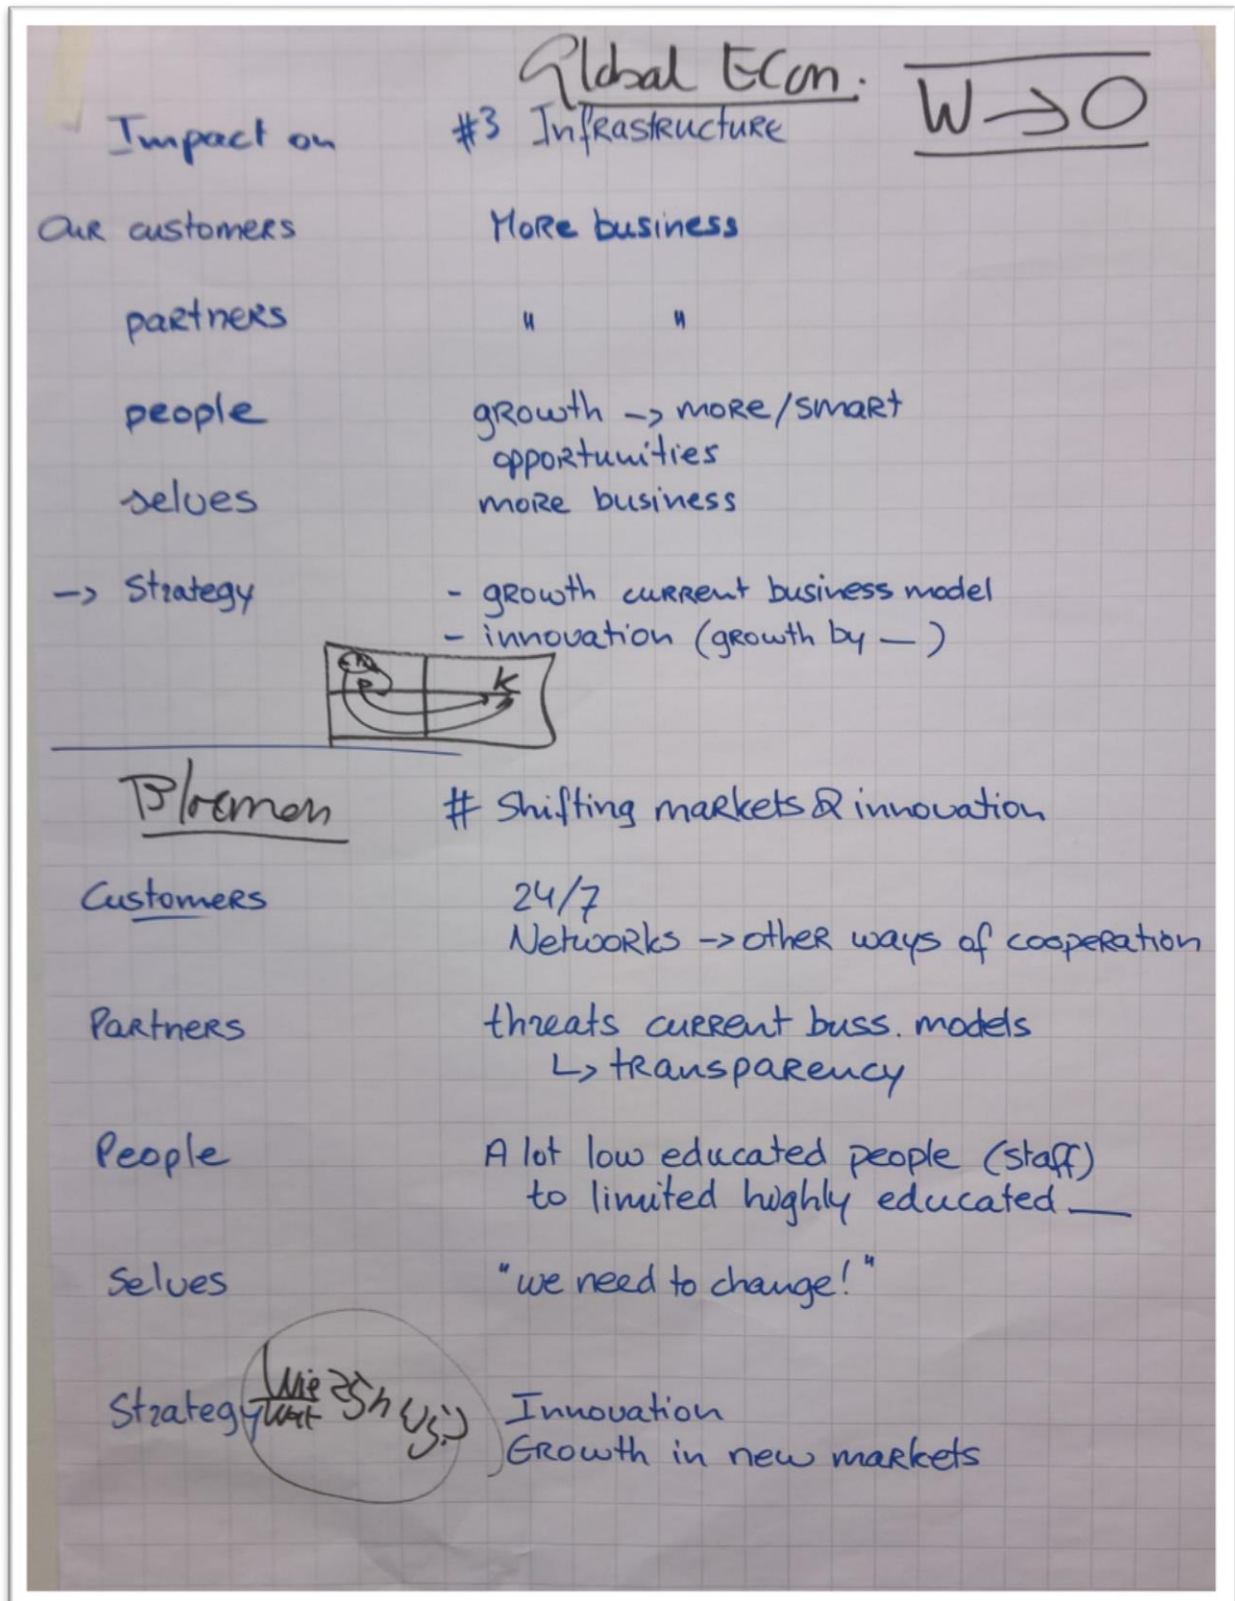 Global Econ. W → O
Impact on #3 Infrastructure
Our customers More business
partners " "
people growth -> more/smart
opportunities
selves more business
-> Strategy - growth current business model
- innovation (growth by — )
K
Bloemen # Shifting markets & innovation
Customers 24/7
Networks -> other ways of cooperation
Partners threats current buss. models
↳ transparency
People A lot low educated people (staff)
to limited highly educated __
Selves "we need to change!"
Strategy Innovation
Wie
Wat
Growth in new markets